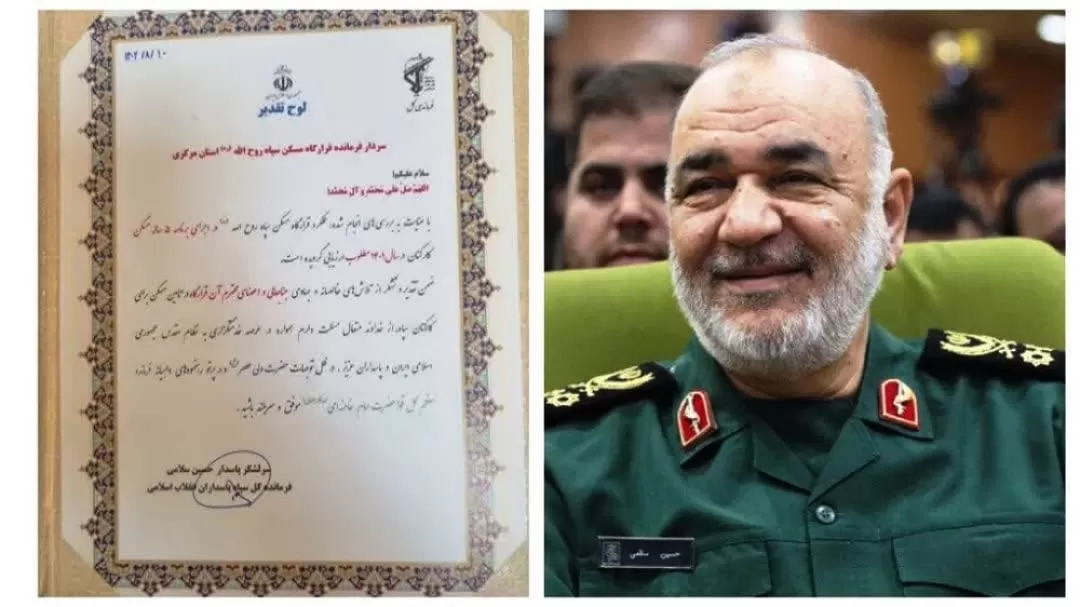 ۱۴۰۲/۸/۱۰
لوح تقدیر
فرماندهی کل
سردار فرمانده قرارگاه مسکن سپاه روح الله استان مرکزی
سلام علیکم؛
اللهم صل علی محمد و آل محمد؛
با عنایت به بررسی‌های انجام شده، عملکرد قرارگاه مسکن سپاه روح الله در اجرای برنامه ۵ ساله مسکن
کارکنان در سال ۱۴۰۱ مطلوب ارزیابی گردیده است.
ضمن تقدیر و تشکر از تلاش‌های خالصانه و جهادی جنابعالی و اعضای محترم آن قرارگاه در تامین مسکن برای
کارکنان سپاه، از خداوند متعال مسئلت دارم همواره در عرصه خدمتگزاری به نظام مقدس جمهوری
اسلامی ایران و پاسداران عزیز، در ظل توجهات حضرت ولی عصر و در پرتو رهنمودهای داهیانه فرمانده
معظم کل قوا حضرت امام خامنه‌ای موفق و سربلند باشید.
سرلشگر پاسدار حسین سلامی
فرمانده کل سپاه پاسداران انقلاب اسلامی
حسین سلامی